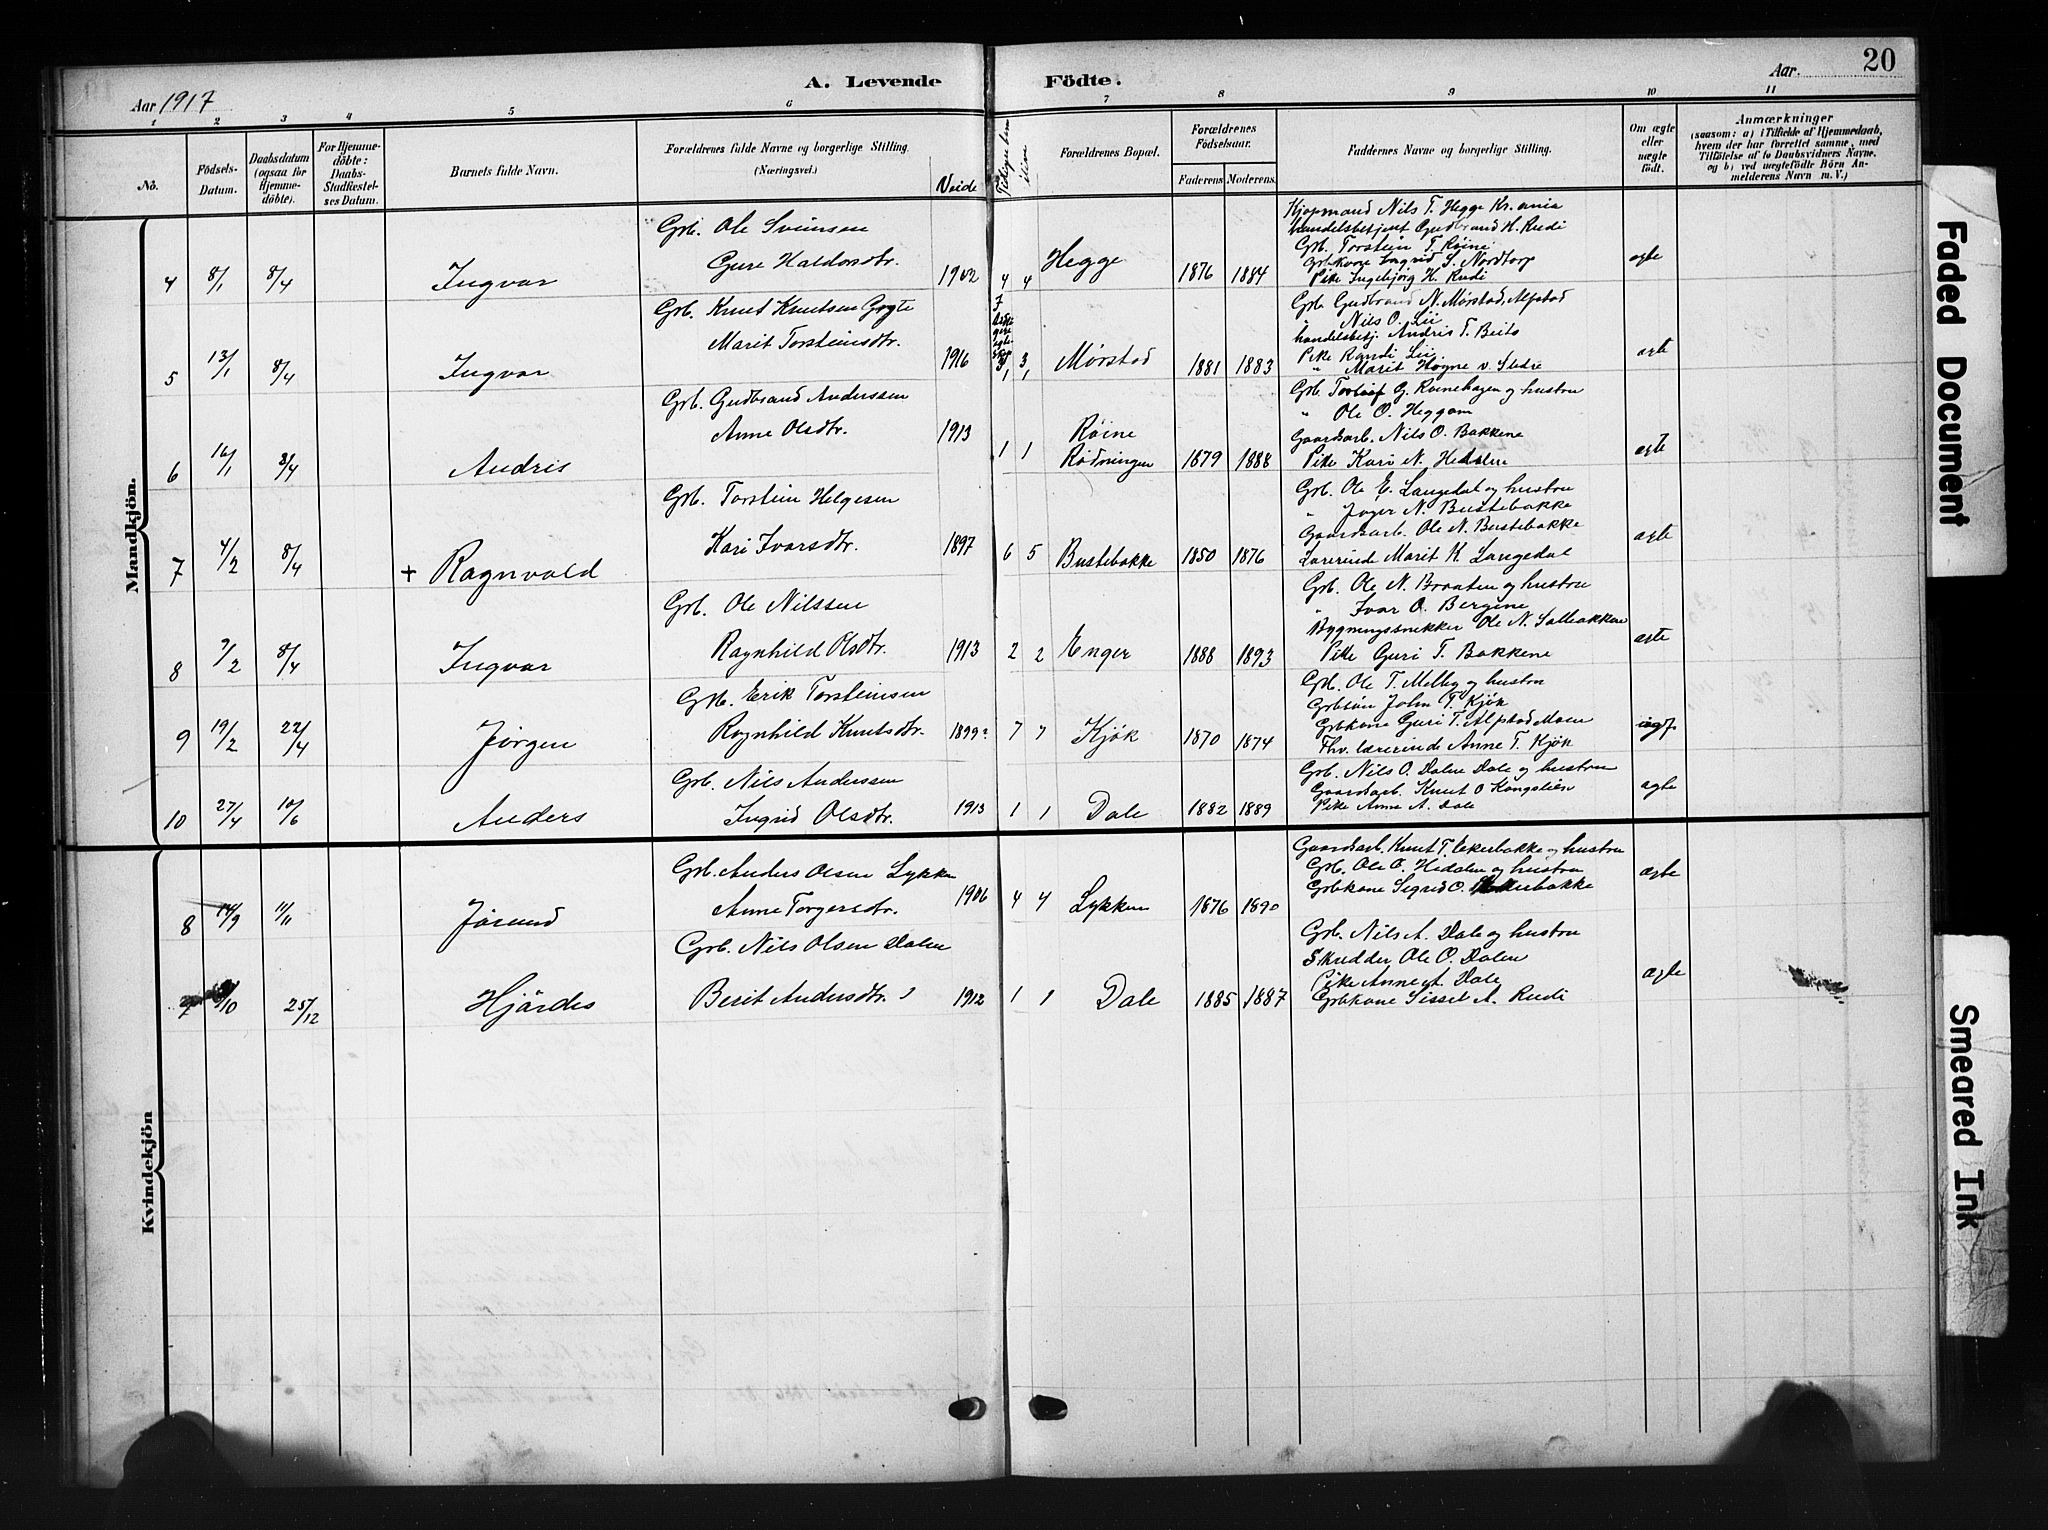 20
A. Levende Födte.
Aar 1917
Aar.
1 2 3 4 5 6 7 8 9 10 11
No.
Födsels-Datum.
Daabsdatum (ogsaa for Hjemmedöbte).
For Hjemmedöbte: Daabs-Stadfæstelses Datum.
Barnets fulde Navn.
Forældrenes fulde Navne og borgerlige Stilling. (Næringsvei.)
Forældrenes Bopæl.
Forældrenes Födselsaar.
Faderens. Moderens.
Faddernes Navne og borgerlige Stilling.
Om ægte eller uægte födt.
Anmærkninger (saasom: a) i Tilfælde af Hjemmedaab, hvem der har forrettet samme, med Tilföielse af to Daabsvidners Navne, og b) ved uægtefödte Börn Anmelderens Navn m. V.)
Mandkjön.
4 8/1 8/4 Ingvar
Grb. Ole Sveinsen
Guri Haldorsdtr. 1902
4 4 Hegge 1876 1884
Kjøpmand Nils T. Hegge Kr.ania
Handelsbetjent Gudbrand H. Rudi
Grb. Torstein T. Røine
Grbkone Ingrid S. Nordtorp
Pike Ingebjørg H. Rudi
ægte
5 13/1 8/4 Ingvar
Grb. Knut Knutsen Grøte
Marit Torsteinsdtr. 1916
Mørstad 1881 1883
Grb. Gudbrand N. Mørstad, Alfstad
" Nils O. Lii
Handelsbetj. Andris T. Beito
Pike Randi Lii
" Marit Høyne v. Slidre
ægte
6 16/1 8/4 Andris
Grb. Gudbrand Anderssen
Anne Olsdtr. 1913
1 1 Røine
Rødningen 1879 1888
Grb. Torleif G. Røinehagen og hustru
" Ole O. Heggom
Gaardsarb. Nils O. Bakkene
Pike Kari N. Hedalen
ægte
7 4/2 8/4 + Ragnvald
Grb. Torstein Helgesen
Kari Ivarsdtr. 1897
6 5 Bustebakke 1850 1876
Grb. Ole E. Langedal og hustru
" Inger N. Bustebakke
Gaardsarb. Ole N. Bustebakke
Lærerinde Marit K. Langedal
ægte
8 7/2 8/4 Ingvar
Grb. Ole Nilssen
Ragnhild Olsdtr. 1913
2 2 Enger 1888 1893
Grb. Ole N. Braaten og hustru
" Ivar O. Bergene
Bygningssnekker Ole N. Sollbakkene
Pike Guri T. Bakkene
ægte
9 19/2 22/4 Jørgen
Grb. Erik Torsteinsen
Ragnhild Knutsdtr. 1899?
7 7 Kjøk 1870 1874
Grb. Ole T. Melby og hustru
Grbsøn John T. Kjøk
Grbkone Guri T. Alfstad Moen
Fhv. lærerinde Anne T. Kjøk
10 27/4 10/6 Anders
Grb. Nils Anderssen
Ingrid Olsdtr. 1913
1 1 Dale 1882 1889
Grb. Nils O. Dalen Dale og hustru
Gaardsarb. Knut O Kongslien
Pike Anne A. Dale
ægte
Kvindekjön
8 14/9 11/11 Jørund
Grb. Anders Olsen Lykken
Anne Torgersdtr. 1906
4 4 Lykken 1876 1890
Gaardsarb. Knut T. Ekerbakke og hustru
Grb. Ole O. Hidalen og hustru
Grbkone Sigrid O. Ekerbakke
ægte
/10 25/12 Hjørdes
Grb. Nils Olsen Dalen
Berit Andersdtr. 1912
1 1 Dale 1885 1887
Grb. Nils A. Dale og hustru
Skredder Ole O. Dalen
Pike Anne A. Dale
Grbkone Sissel A. Rudi
ægte
Faded Document
Smeared Ink